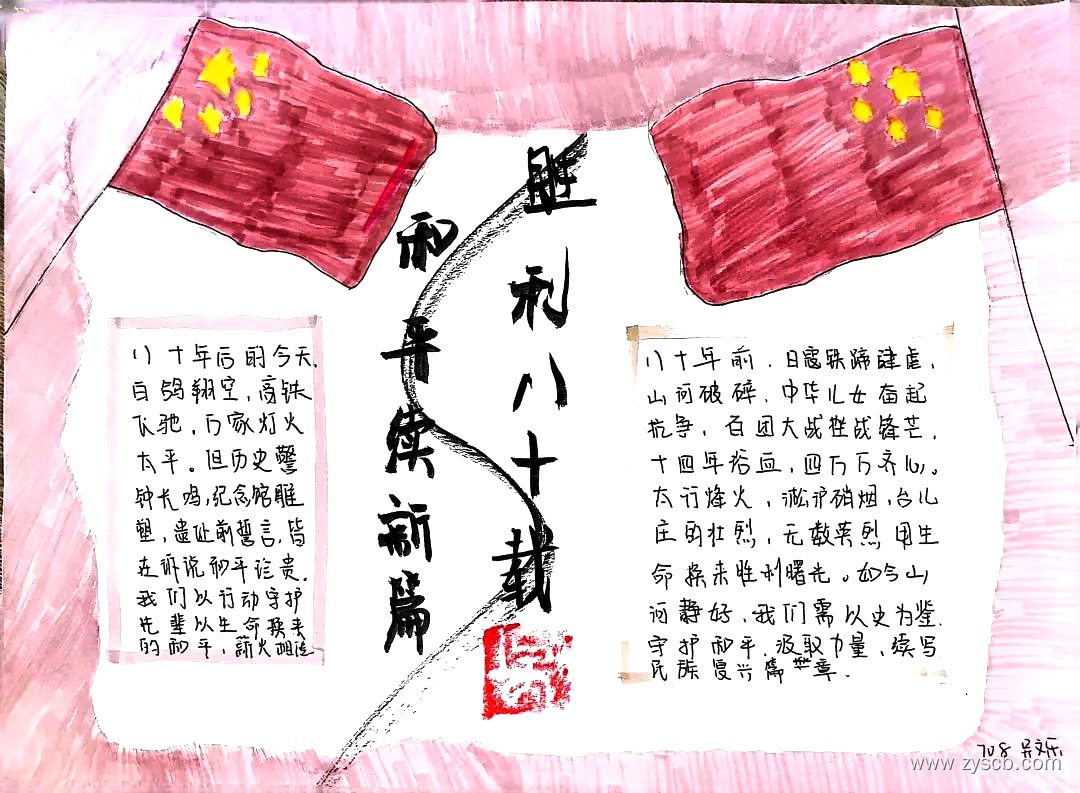 胜利八十载
和平续新篇
八十年前,日寇铁蹄肆虐,
山河破碎,中华儿女奋起
抗争,百团大战挫战锋芒,
十四年浴血,四万万齐心。
太行烽火,淞沪硝烟,台儿
庄的壮烈,无数英烈用生
命换来胜利曙光。如今山
河静好,我们需以史为鉴.
守护和平.汲取力量,续写
民族复兴篇章.
八十年后的今天.
白鸽翱空,高铁
飞驰,万家灯火
太平。但历史警
钟长鸣,纪念馆雕
塑,遗址前誓言,皆
在诉说和平珍贵.
我们以行动守护
先辈以生命换来
的和平,薪火相传
708 吴文乐
www.zyscb.com